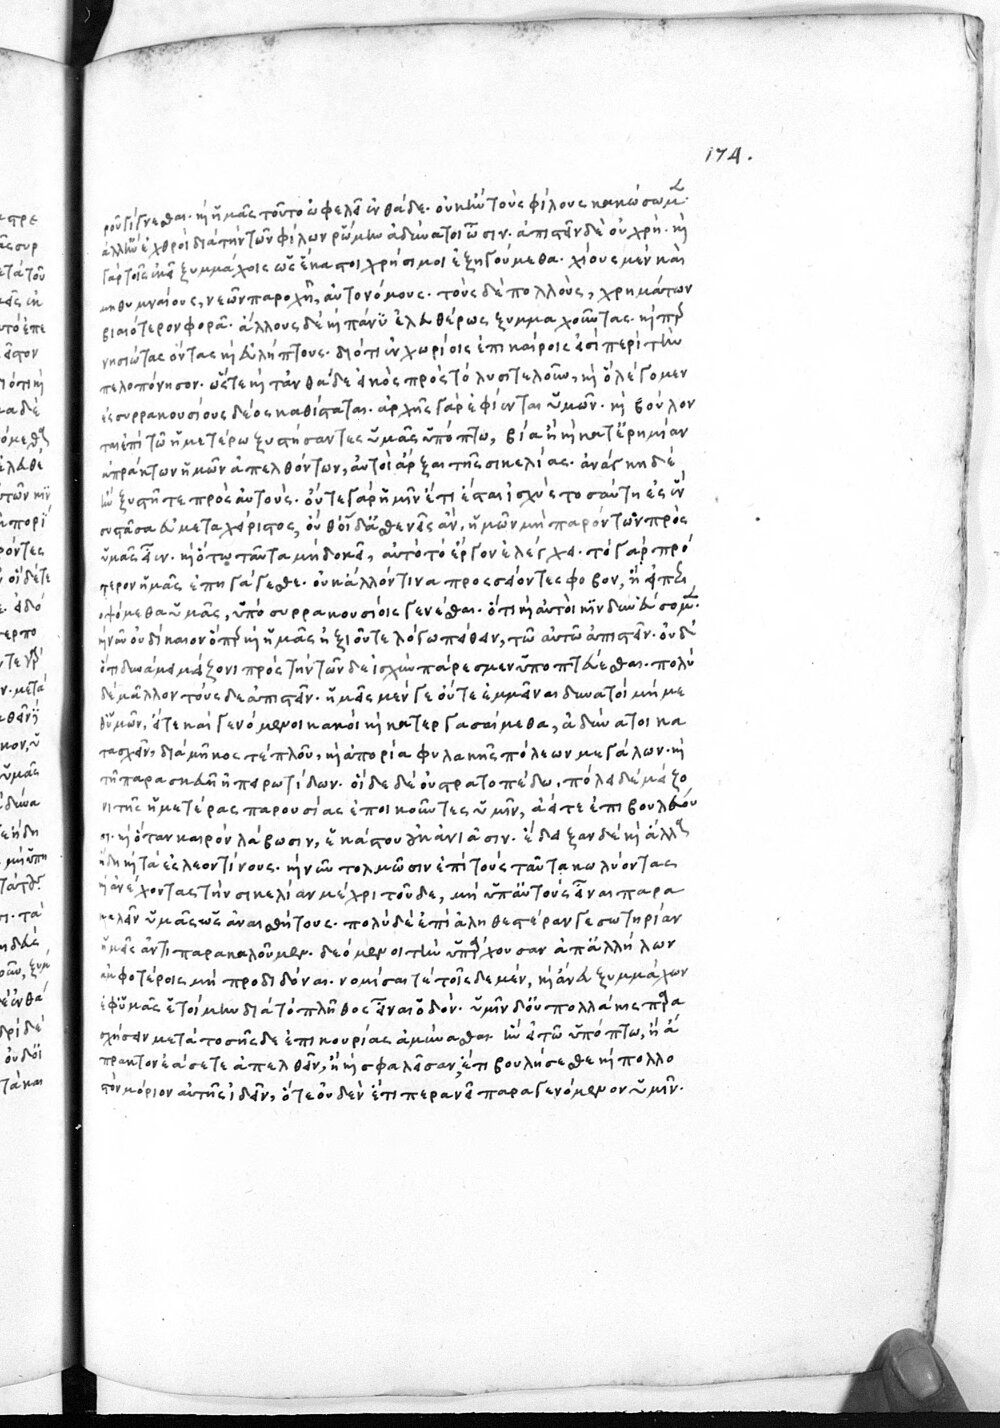 ροῦ γίγνεσθαι. καὶ ἡμᾶς τοῦτο ὠφελεῖ ἐνθάδε. οὐκ ἢν τοὺς φίλους κακώσωμεν.
ἀλλ' ἢν ἐχθροὶ διὰ τὴν τῶν φίλων ῥώμην ἀδύνατοι ὦσιν. ἀπιστεῖν δὲ οὐ χρή. καὶ
γὰρ τοῖς ἐκεῖ ξυμμάχοις ὡς ἕκαστοι χρήσιμοι ἐξηγούμεθα. χίους μὲν καὶ
μηθυμναίους, νεῶν παροχῇ, αὐτονόμους. τοὺς δὲ πολλοὺς, χρημάτων
βιαιότερον φορᾶ. ἄλλους δὲ καὶ πάνυ ἐλευθέρως ξυμμαχοῦντας. καίπερ
νησιώτας ὄντας καὶ εὐλήπτους. διότι ἐν χωρίοις ἐπικαίροις εἰσὶ περὶ τὴν
πελοπόνησον. ὥστε καὶ τἀνθάδε εἰκὸς πρὸς τὸ λυσιτελοῦν, καὶ ὃ λέγομεν
ἐς συρρακουσίους δέος καθίσταται. ἀρχῆς γὰρ ἐφίενται ὑμῶν. καὶ βούλον
ται ἐπὶ τῶ ἡμετέρω ξυστήσαντες ὑμᾶς ὑπόπτω, βία ἢ καὶ κατ' ἐρημίαν
ἀπράκτων ἡμῶν ἀπελθόντων, αὐτοὶ ἄρξαι τῆς σικελίας. ἀνάγκη δέ,
ἢν ξυστῆτε πρὸς αὐτούς. οὔτε γὰρ ἡμῖν ἔτι ἔσται ἰσχὺς τοσαύτη ἐς ἓν
συστᾶσα εὐμεταχείριστος, οὔθ' οἵδ' ἀσθενεῖς ἂν, ἡμῶν μὴ παρόντων πρὸς
ὑμᾶς εἶεν. καὶ ὅτω ταῦτα μὴ δοκεῖ, αὐτὸ τὸ ἔργον ἐλέγχει. τὸ γὰρ πρό
τερον ἡμᾶς ἐπηγάγεσθε. οὐκ ἄλλόν τινα προσσείοντες φόβον, ἢ εἰ περι
οψόμεθα ὑμᾶς, ὑπὸ συρρακουσίοις γενέσθαι. ὅτι καὶ αὐτοὶ κινδυνεύσομεν.
καὶ νῦν οὐ δίκαιον ὅπερ καὶ ἡμᾶς ἠξιοῦτε λόγω πείθειν, τῶ αὐτῶ ἀπιστεῖν. οὐδὲ
ὅτι δυνάμει μείζονι πρὸς τὴν τῶνδε ἰσχὺν πάρεσμεν ὑποπτεύεσθαι. πολὺ
δὲ μᾶλλον τοῖσδε ἀπιστεῖν. ἡμεῖς μέν γε οὔτε ἐμμεῖναι δυνατοὶ μὴ με
θ' ὑμῶν. εἴ τε καὶ γενόμενοι κακοὶ καὶ κατεργασαίμεθα, ἀδύνατοι κα
τασχεῖν, διὰ μῆκος τὲ πλοῦ, καὶ ἀπορία φυλακῆς πόλεων μεγάλων. καὶ
τῆ παρασκευῆ ἠπειρωτίδων. οἵδε δὲ οὐ στρατοπέδω, πόλει δὲ μείζο
νι τῆς ἡμετέρας παρουσίας ἐποικοῦντες ὑμῖν, ἀεί τε ἐπιβουλεύου
σι. καὶ ὅταν καιρὸν λάβωσιν, ἑκάστου οὐκ ἀνιᾶσιν. ἔδειξαν δὲ καὶ ἄλλα
ἤδη καὶ τὰ ἐς λεοντίνους. καὶ νῦν τολμῶσιν ἐπὶ τοὺς ταῦτα κωλύοντας
καὶ ἀνέχοντας τὴν σικελίαν μέχρι τοῦδε, μὴ ὑπ' αὐτοὺς εἶναι παρα
καλεῖν ὑμᾶς ὡς ἀναισθήτους. πολὺ δὲ ἐπὶ ἀληθεστέραν γε σωτηρίαν
ἡμεῖς ἀντιπαρακαλοῦμεν. δεόμενοι τὴν ὑπάρχουσαν ἀπ' ἀλλήλων
ἀμφοτέροις μὴ προδιδόναι. νομίσαι τὲ τοῖσδε μὲν, καὶ ἄνευ ξυμμάχων
ἐφ' ὑμᾶς ἑτοίμην διὰ τὸ πλῆθος εἶναι ὁδόν. ὑμῖν δ' οὐ πολλάκις παρα
σχήσειν μετὰ τοσῆσδε ἐπικουρίας ἀμύνασθαι ἣν εἰ τῶ ὑπόπτω, ἢ ἄ
πρακτον ἐάσετε ἀπελθεῖν, ἢ καὶ σφαλεῖσαν, ἔτι βουλήσεσθε καὶ πολλο
στὸν μόριον αὐτῆς ἰδεῖν, ὅτε οὐδὲν ἔτι περανεῖ παραγενόμενον ὑμῖν.
174.